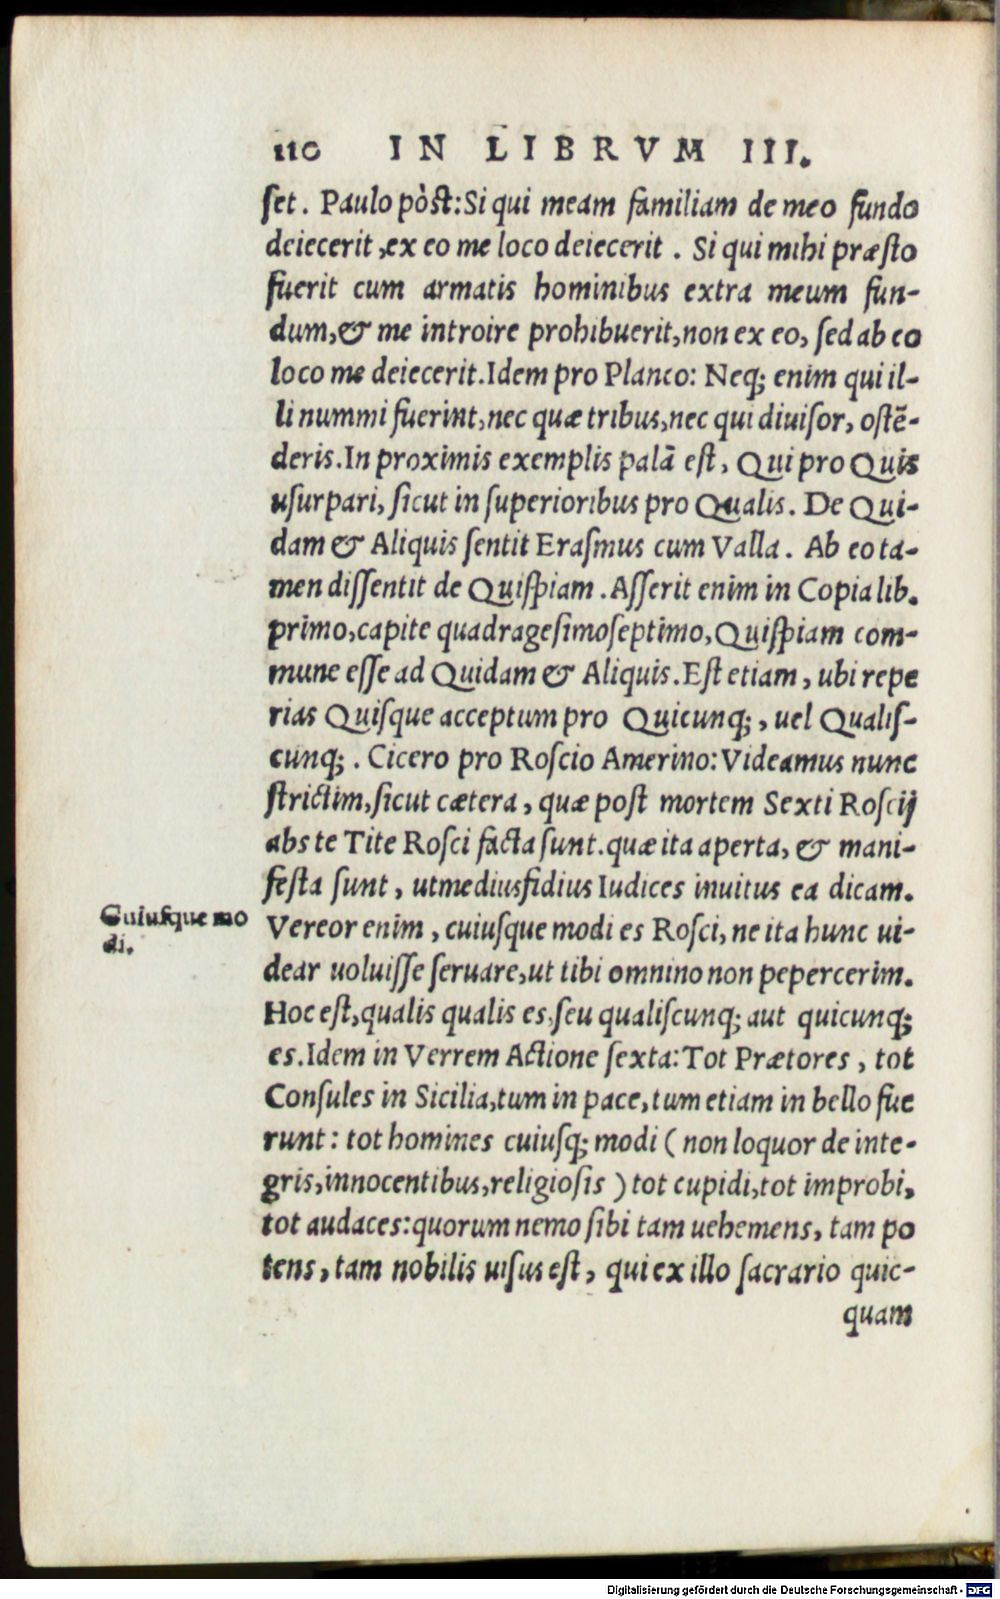 110 IN LIBRVM III.
ſet. Paulo pòſt: Si qui meam familiam de meo fundo
deiecerit, ex eo me loco deiecerit. Si qui mihi præſto
fuerit cum armatis hominibus extra meum fun-
dum, & me introire prohibuerit, non ex eo, ſed ab eo
loco me deiecerit. Idem pro Planco: Neq; enim qui il-
li nummi fuerint, nec quæ tribus, nec qui diuiſor, oſtẽ-
deris. In proximis exemplis palã eſt, Qui pro Quis
uſurpari, ſicut in ſuperioribus pro Qualis. De Qui-
dam & Aliquis ſentit Eraſmus cum Valla. Ab eo ta-
men diſſentit de Quiſpiam. Aſſerit enim in Copia lib.
primo, capite quadrageſimoſeptimo, Quiſpiam com-
mune eſſe ad Quidam & Aliquis. Eſt etiam, ubi repe
rias Quiſque acceptum pro Quicunq;, uel Qualiſ-
cunq;. Cicero pro Roſcio Amerino: Videamus nunc
ſtrictim, ſicut cætera, quæ poſt mortem Sexti Roſcij
abs te Tite Roſci facta ſunt. quæ ita aperta, & mani-
feſta ſunt, ut mediusfidius Iudices inuitus ea dicam.
Cuiuſque mo
di.
Vereor enim, cuiuſque modi es Roſci, ne ita hunc ui-
dear uoluiſſe ſeruare, ut tibi omnino non pepercerim.
Hoc eſt, qualis qualis es, ſeu qualiſcunq; aut quicunq;
es. Idem in Verrem Actione ſexta: Tot Prætores, tot
Conſules in Sicilia, tum in pace, tum etiam in bello fue
runt: tot homines cuiuſq; modi (non loquor de inte-
gris, innocentibus, religioſis) tot cupidi, tot improbi,
tot audaces: quorum nemo ſibi tam uehemens, tam po
tens, tam nobilis uiſus eſt, qui ex illo ſacrario quic-
quam
Digitalisierung gefördert durch die Deutsche Forschungsgemeinschaft - DFG